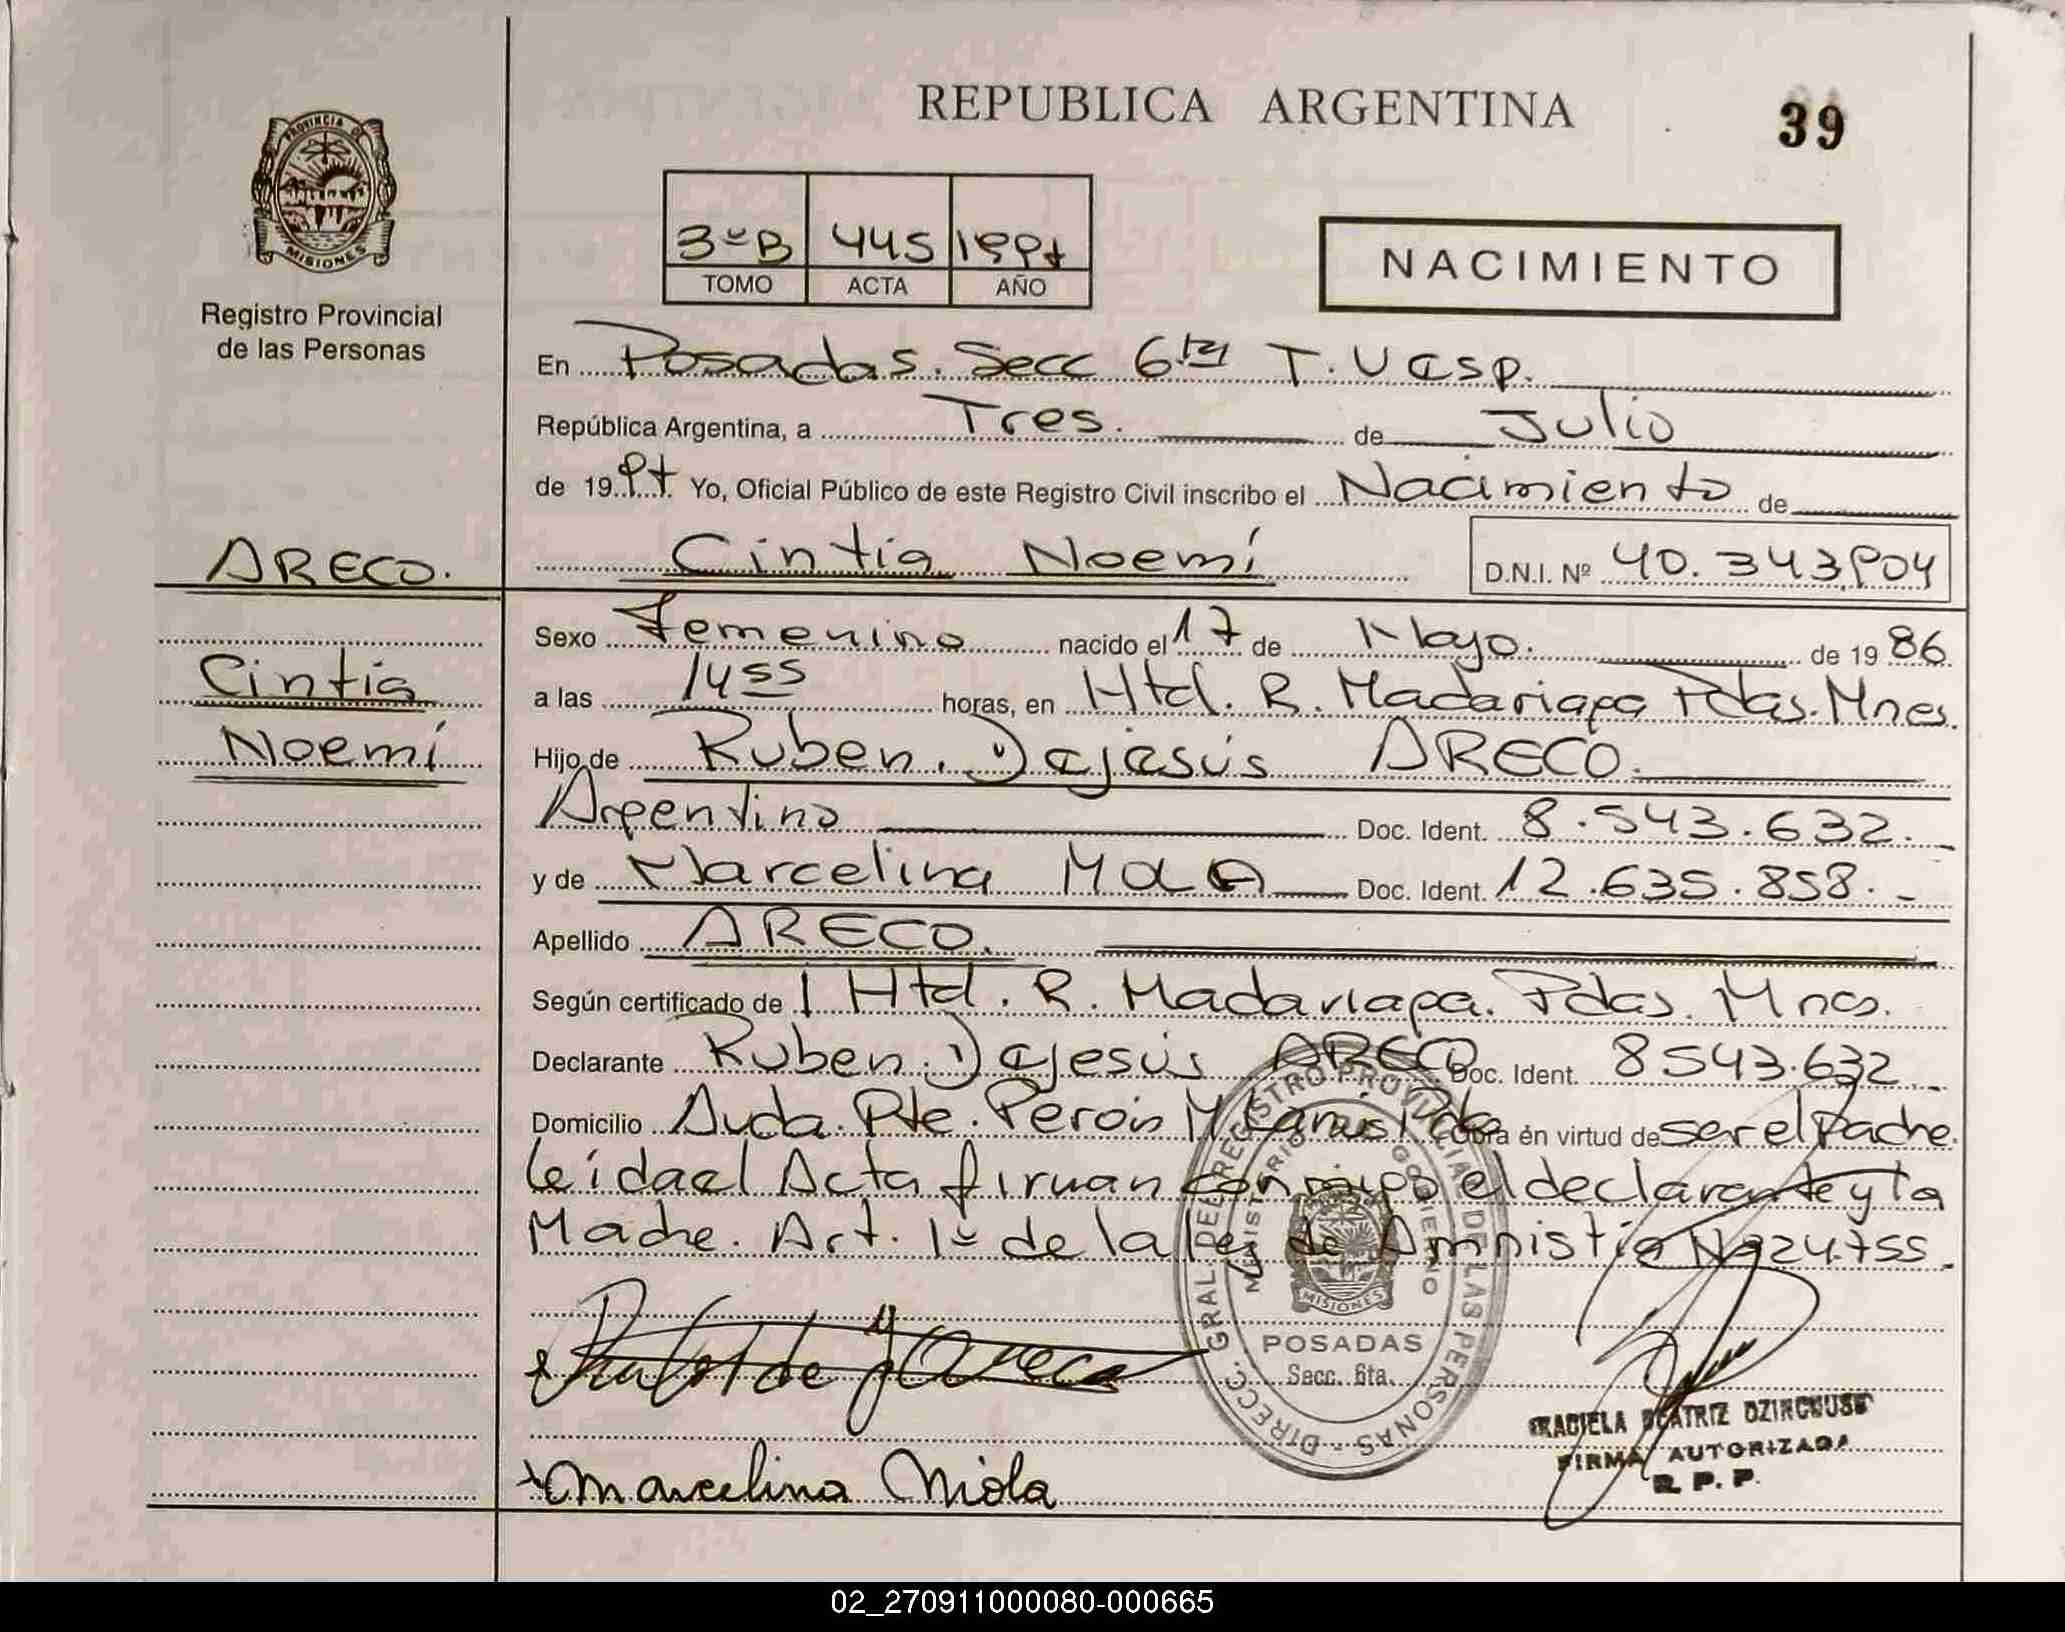 REPUBLICA ARGENTINA
39
PROVINCIA DE
MISIONES
Registro Provincial
de las Personas
3º B 445 1997
TOMO ACTA AÑO
NACIMIENTO
En Posadas. Secc 6ta T.
República Argentina, a Tres. de Julio
de 1997 Yo, Oficial Público de este Registro Civil inscribo el Nacimiento de
ARECO. Cintia Noemí D.N.I. Nº 40.343.904
Sexo Femenino nacido el 17 de Mayo. de 1986
Cintia
a las 14 55 horas, en Htal. R. Madariaga Pdas. Mnes.
Noemí
Hijo de Ruben. Dejesús ARECO.
Argentino Doc. Ident. 8.543.632.
y de Marcelina Doc. Ident. 12.635.858.
Apellido ARECO.
Según certificado de Htal. R. Madariaga. Pdas. Mnes.
Declarante Ruben Dejesús ARECO Doc. Ident. 8543.632
Domicilio Avda. Pte. Perón obra en virtud de ser el Padre.
leida el Acta firman conmigo el declarante y la
Madre. Art. 1º de la ley de Amnistia Nº 24.755
DIRECC. GRAL. DEL REGISTRO PROVINCIAL DE LAS PERSONAS
MINISTERIO DE GOBIERNO
MISIONES
POSADAS
Secc. 6ta.
Marcelina Mola
BEATRIZ
FIRMA AUTORIZADA
R. P. P.
02_270911000080-000665